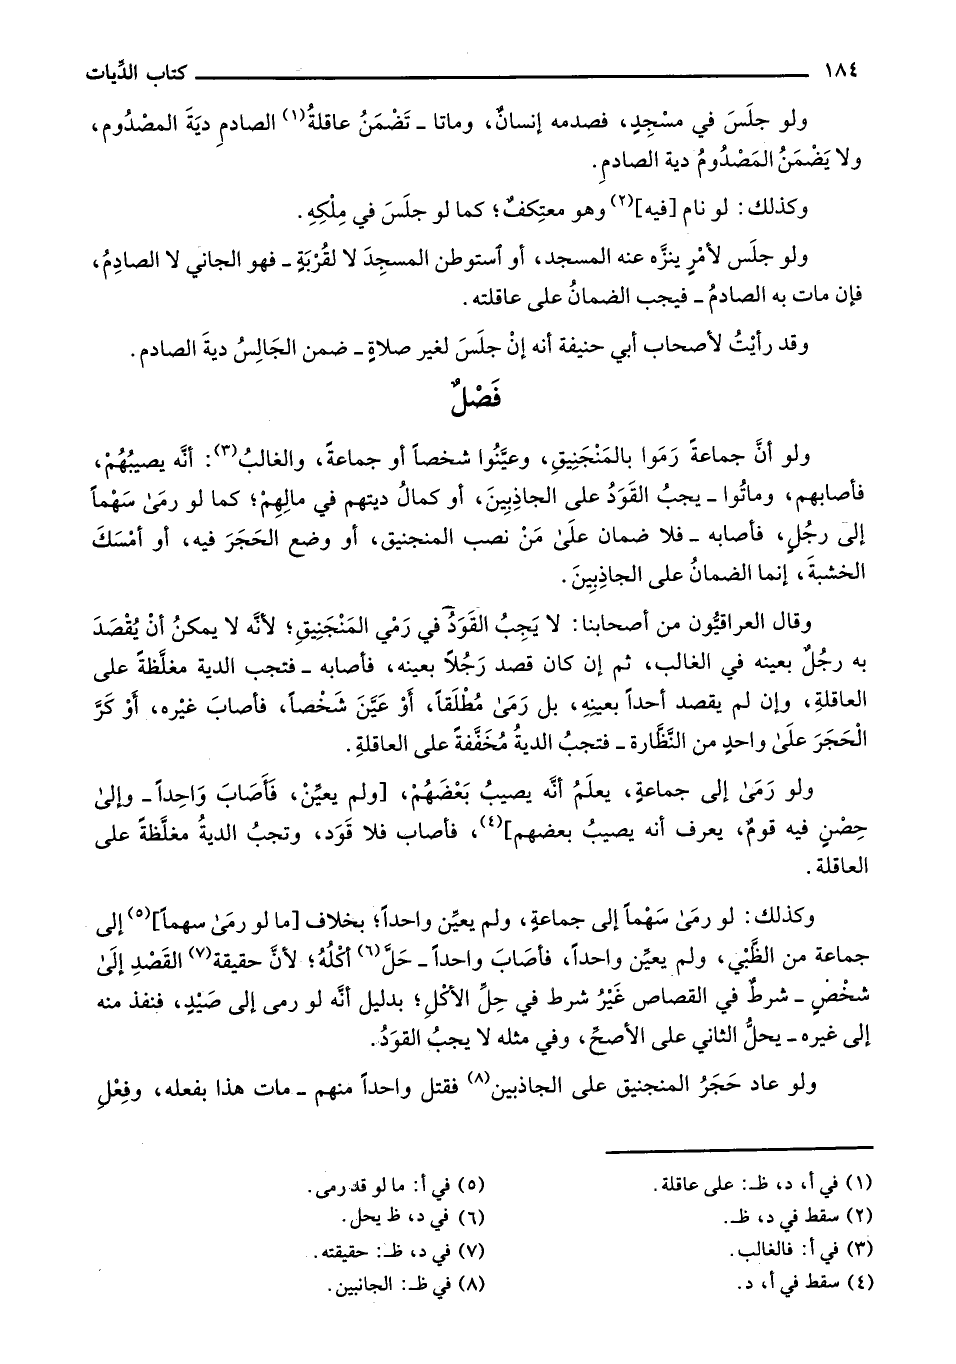 ١٨٤ ــــــــ كتاب الدِّيات
ولو جلَسَ في مسْجِدٍ، فصدمه إنسانٌ، وماتا ـ تَضْمَنُ عاقلةُ(١) الصادمِ ديَةَ المصْدُوم،
ولا يَضْمَنُ المَصْدُومُ دية الصادمِ.
وكذلك: لو نام [فيه](٢) وهو معتِكفٌ؛ كما لو جلَسَ في مِلْكِهِ.
ولو جلَس لأمْرٍ ينزَّه عنه المسجد، أو ٱستوطن المسجِدَ لا لقُرْبَةٍ ـ فهو الجاني لا الصادِمُ،
فإن مات به الصادمُ ـ فيجب الضمانُ على عاقلته.
وقد رأيْتُ لأصحاب أبي حنيفة أنه إنْ جلَسَ لغير صلاةٍ ـ ضمن الجَالِسُ ديةَ الصادم.
فَصْلٌ
ولو أنَّ جماعةً رَمَوا بالمَنْجَنِيقِ، وعيَّنُوا شخصاً أو جماعةً، والغالبُ(٣): أنَّه يصيبُهُمْ،
فأصابهم، وماتُوا ـ يجبُ القَوَدُ على الجاذِبِينَ، أو كمالُ ديتهم في مالِهِمْ؛ كما لو رمَىٰ سَهْماً
إلى رجُلٍ، فأصابه ـ فلا ضمان علَىٰ مَنْ نصب المنجنيق، أو وضع الحَجَرَ فيه، أو أمْسَكَ
الخشبةَ، إنما الضمانُ على الجاذِبِينَ.
وقال العراقيُّون من أصحابنا: لا يَجِبُ القَوَدُ في رَمْي المَنْجَنِيقِ؛ لأنَّه لا يمكنُ أنْ يُقْصَدَ
به رجُلٌ بعينه في الغالب، ثم إن كان قصد رَجُلاً بعينه، فأصابه ـ فتجب الدية مغلَّظةً على
العاقلةِ، وإن لم يقصد أحداً بعينِهِ، بل رَمَىٰ مُطْلَقاً، أَوْ عَيَّنَ شَخْصاً، فأصابَ غيْره، أَوْ كَرَّ
الْحَجَرَ علَىٰ واحدٍ من النَّظَّارة ـ فتجبُ الديةُ مُخَفَّفةً على العاقلةِ.
ولو رَمَىٰ إلى جماعةٍ، يعلَمُ أنَّه يصيبُ بَعْضَهُمْ، [ولم يعيِّنْ، فَأَصَابَ وَاحِداً ـ وإلىٰ
حِصْنٍ فيه قومٌ، يعرف أنه يصيبُ بعضهم](٤)، فأصاب فلا قَوَد، وتجبُ الديةُ مغلَّظةً على
العاقلة.
وكذلك: لو رمَىٰ سَهْماً إلى جماعةٍ، ولم يعيِّن واحداً؛ بخلاف [ما لو رمَىٰ سهماً](٥) إلى
جماعة من الظَّبْي، ولم يعيِّن واحداً، فأصَابَ واحداً ـ حَلَّ(٦) أكْلُهُ؛ لأنَّ حقيقة(٧) القَصْدِ إلَىٰ
شخْصٍ ـ شرطٌ في القصاص غَيْرُ شرط في حِلِّ الأكْلِ؛ بدليل أنَّه لو رمى إلى صَيْدٍ، فنفذ منه
إلى غيره ـ يحلُّ الثاني على الأصحِّ، وفي مثله لا يجبُ القوَدُ.
ولو عاد حَجَرُ المنجنيق على الجاذبين(٨) فقتل واحداً منهم ـ مات هذا بفعله، وفِعْلِ
(١) في أ، د، ظـ: على عاقلة.
(٢) سقط في د، ظـ.
(٣) في أ: فالغالب.
(٤) سقط في أ، د.
(٥) في أ: ما لو قد رمى.
(٦) في د، ظ يحل.
(٧) في د، ظـ: حقيقته.
(٨) في ظـ: الجانبين.